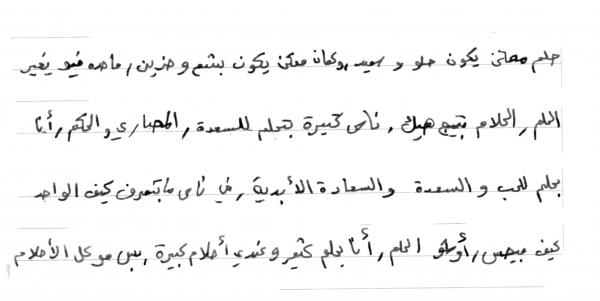 حلم ممكن يكون حلو و سعيد, وكمان ممكن يكون بشع وحزين, ماحدا فيو يغير
الحلم, الحلام بتيج هيك, ناس كتيرة بتحلم للسعدة, المصاري والحكم, أنا
بحلم للحب والسعدة والسعادة الأبدية, في ناس مابتعرف كيف الواحد
كيف بيحس, أوشو الحلم, أنا بحلم كثير وعندي أحلام كبيرة, بس مو كل الأحلام